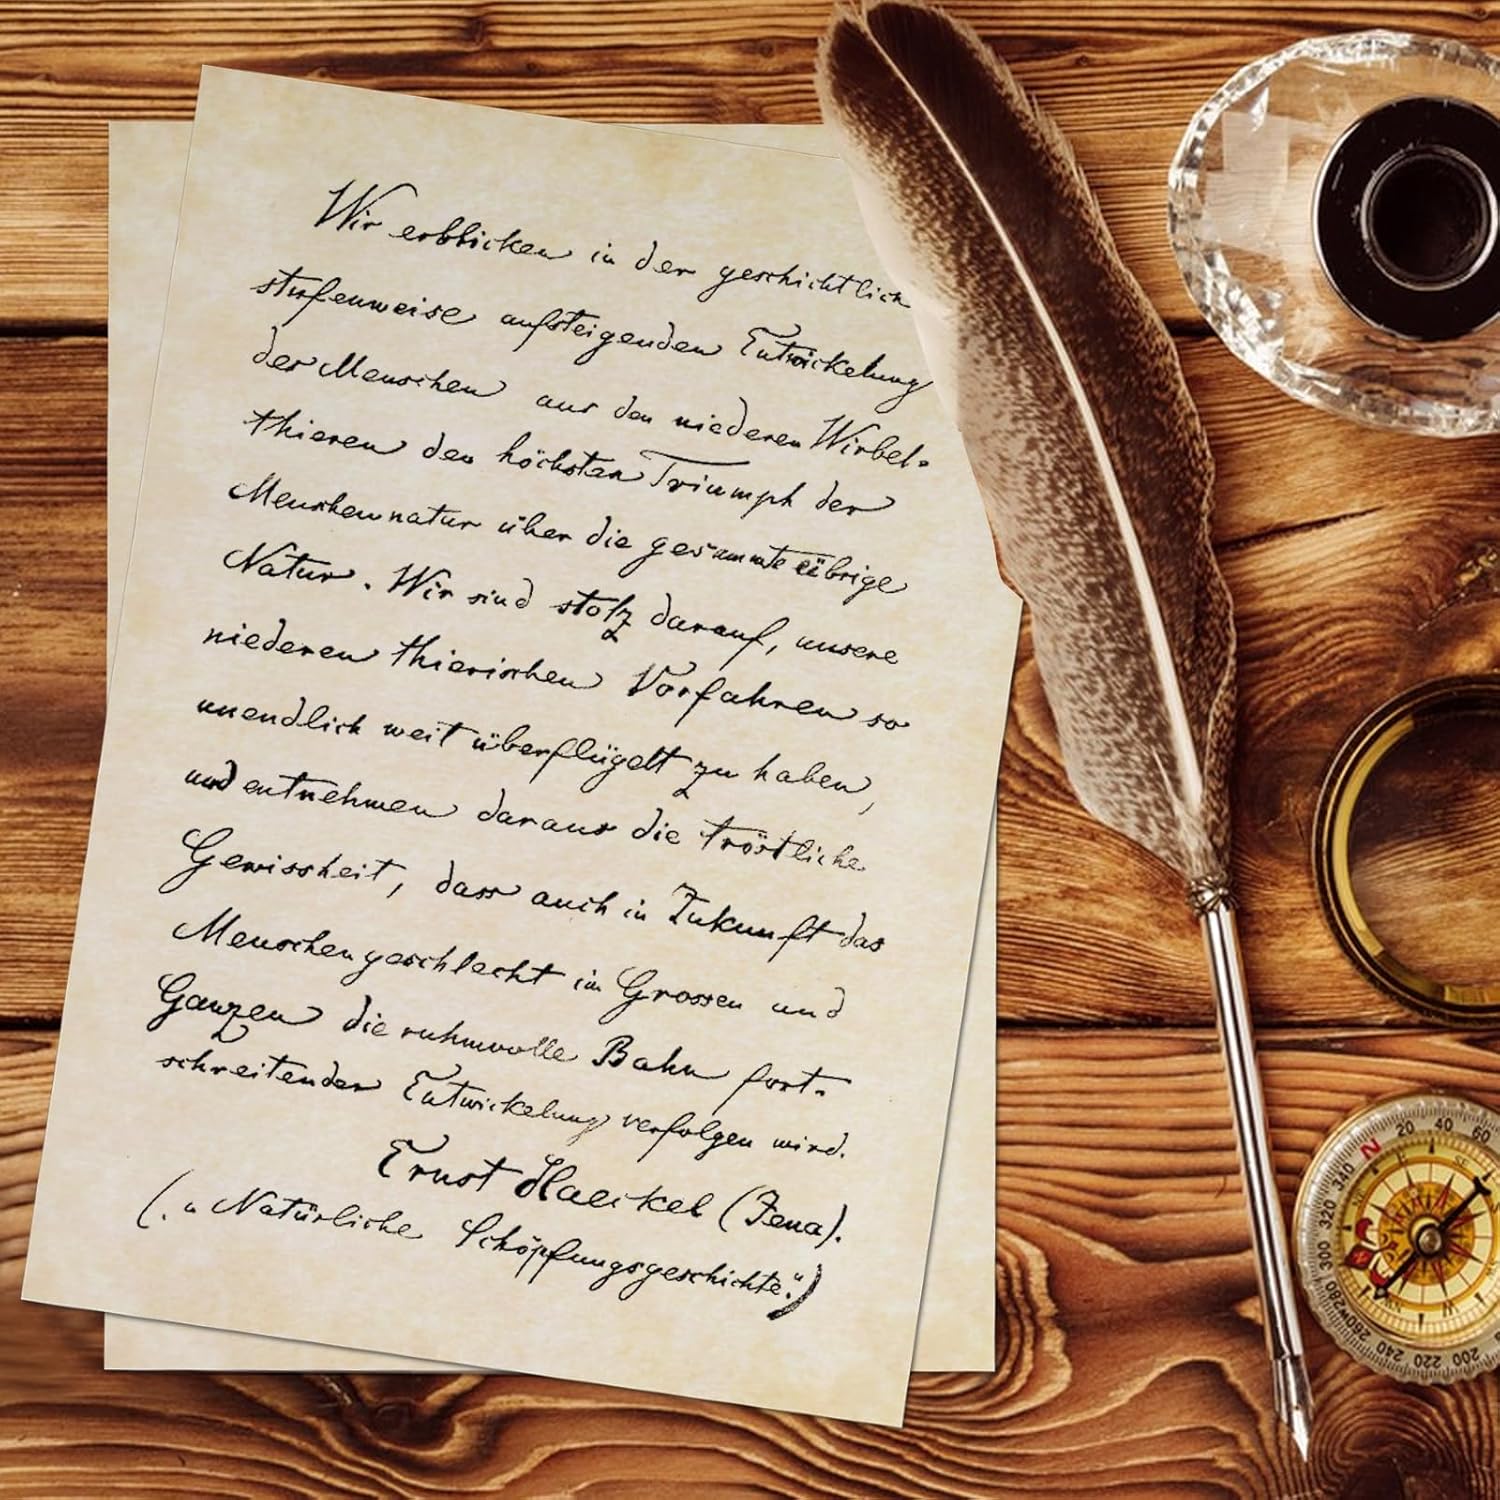 Wir erblicken in der geschichtlich
stufenweise aufsteigenden Entwickelung
der Menschen aus den niederen Wirbel-
thieren den höchsten Triumph der
Menschennatur über die gesammte übrige
Natur. Wir sind stolz darauf, unsere
niederen thierischen Vorfahren so
unendlich weit überflügelt zu haben,
und entnehmen daraus die tröstliche
Gewissheit, dass auch in Zukunft das
Menschengeschlecht im Grossen und
Ganzen die ruhmvolle Bahn fort-
schreitender Entwickelung verfolgen wird.
Ernst Haeckel (Jena).
(„Natürliche Schöpfungsgeschichte.")
N 20 40 60
340
320
300
280
W
260
240
220
200
SE
W